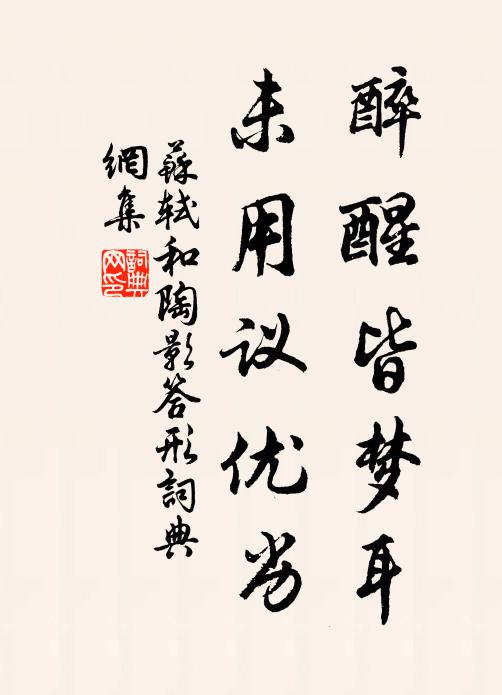 醉醒皆梦耳
未用议优劣
蘇軾和陶影答形詞典
網集
詞典
网印